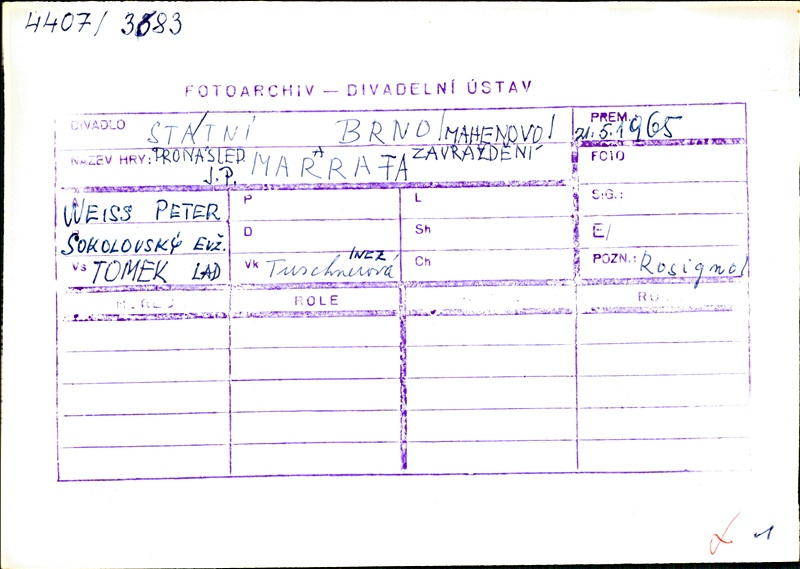 4407/ 3583
FOTOARCHIV — DIVADELNÍ ÚSTAV
DIVADLO STÁTNÍ BRNO /MAHENOVO/
PREM. 21.5.1965
NÁZEV HRY: PRONÁSLED. A ZAVRAŽDĚNÍ
J.P. MARRATA
FOTO
WEISS PETER
P
L
SIG.:
SOKOLOVSKÝ EVŽ.
D
Sh
E/
Vs TOMEK LAD
Vk Tuschnerová INEZ
Ch
POZN.: Rosignol
ROLE
1